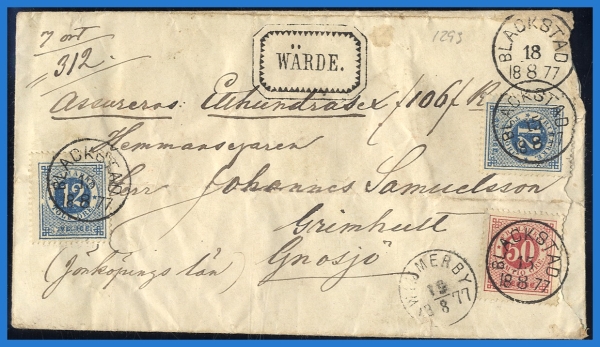 7 ort
312.
WÄRDE.
1293
BLACKSTAD
18
18 8 77
Assureras Etthundrasex /106/ R
Hemmansegaren
Herr Johannes Samuelsson
Grimhult
Gnosjö
(Jönköpings län)
BLACKSTAD
18 8
12
BLACKSTAD
18 8 77
12
BLACKSTAD
18 8 77
50
WIMMERBY
19
8 77